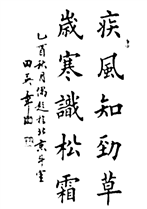 疾風知勁草
歲寒識松霜
乙酉秋月偶題於北京平臺
田英章